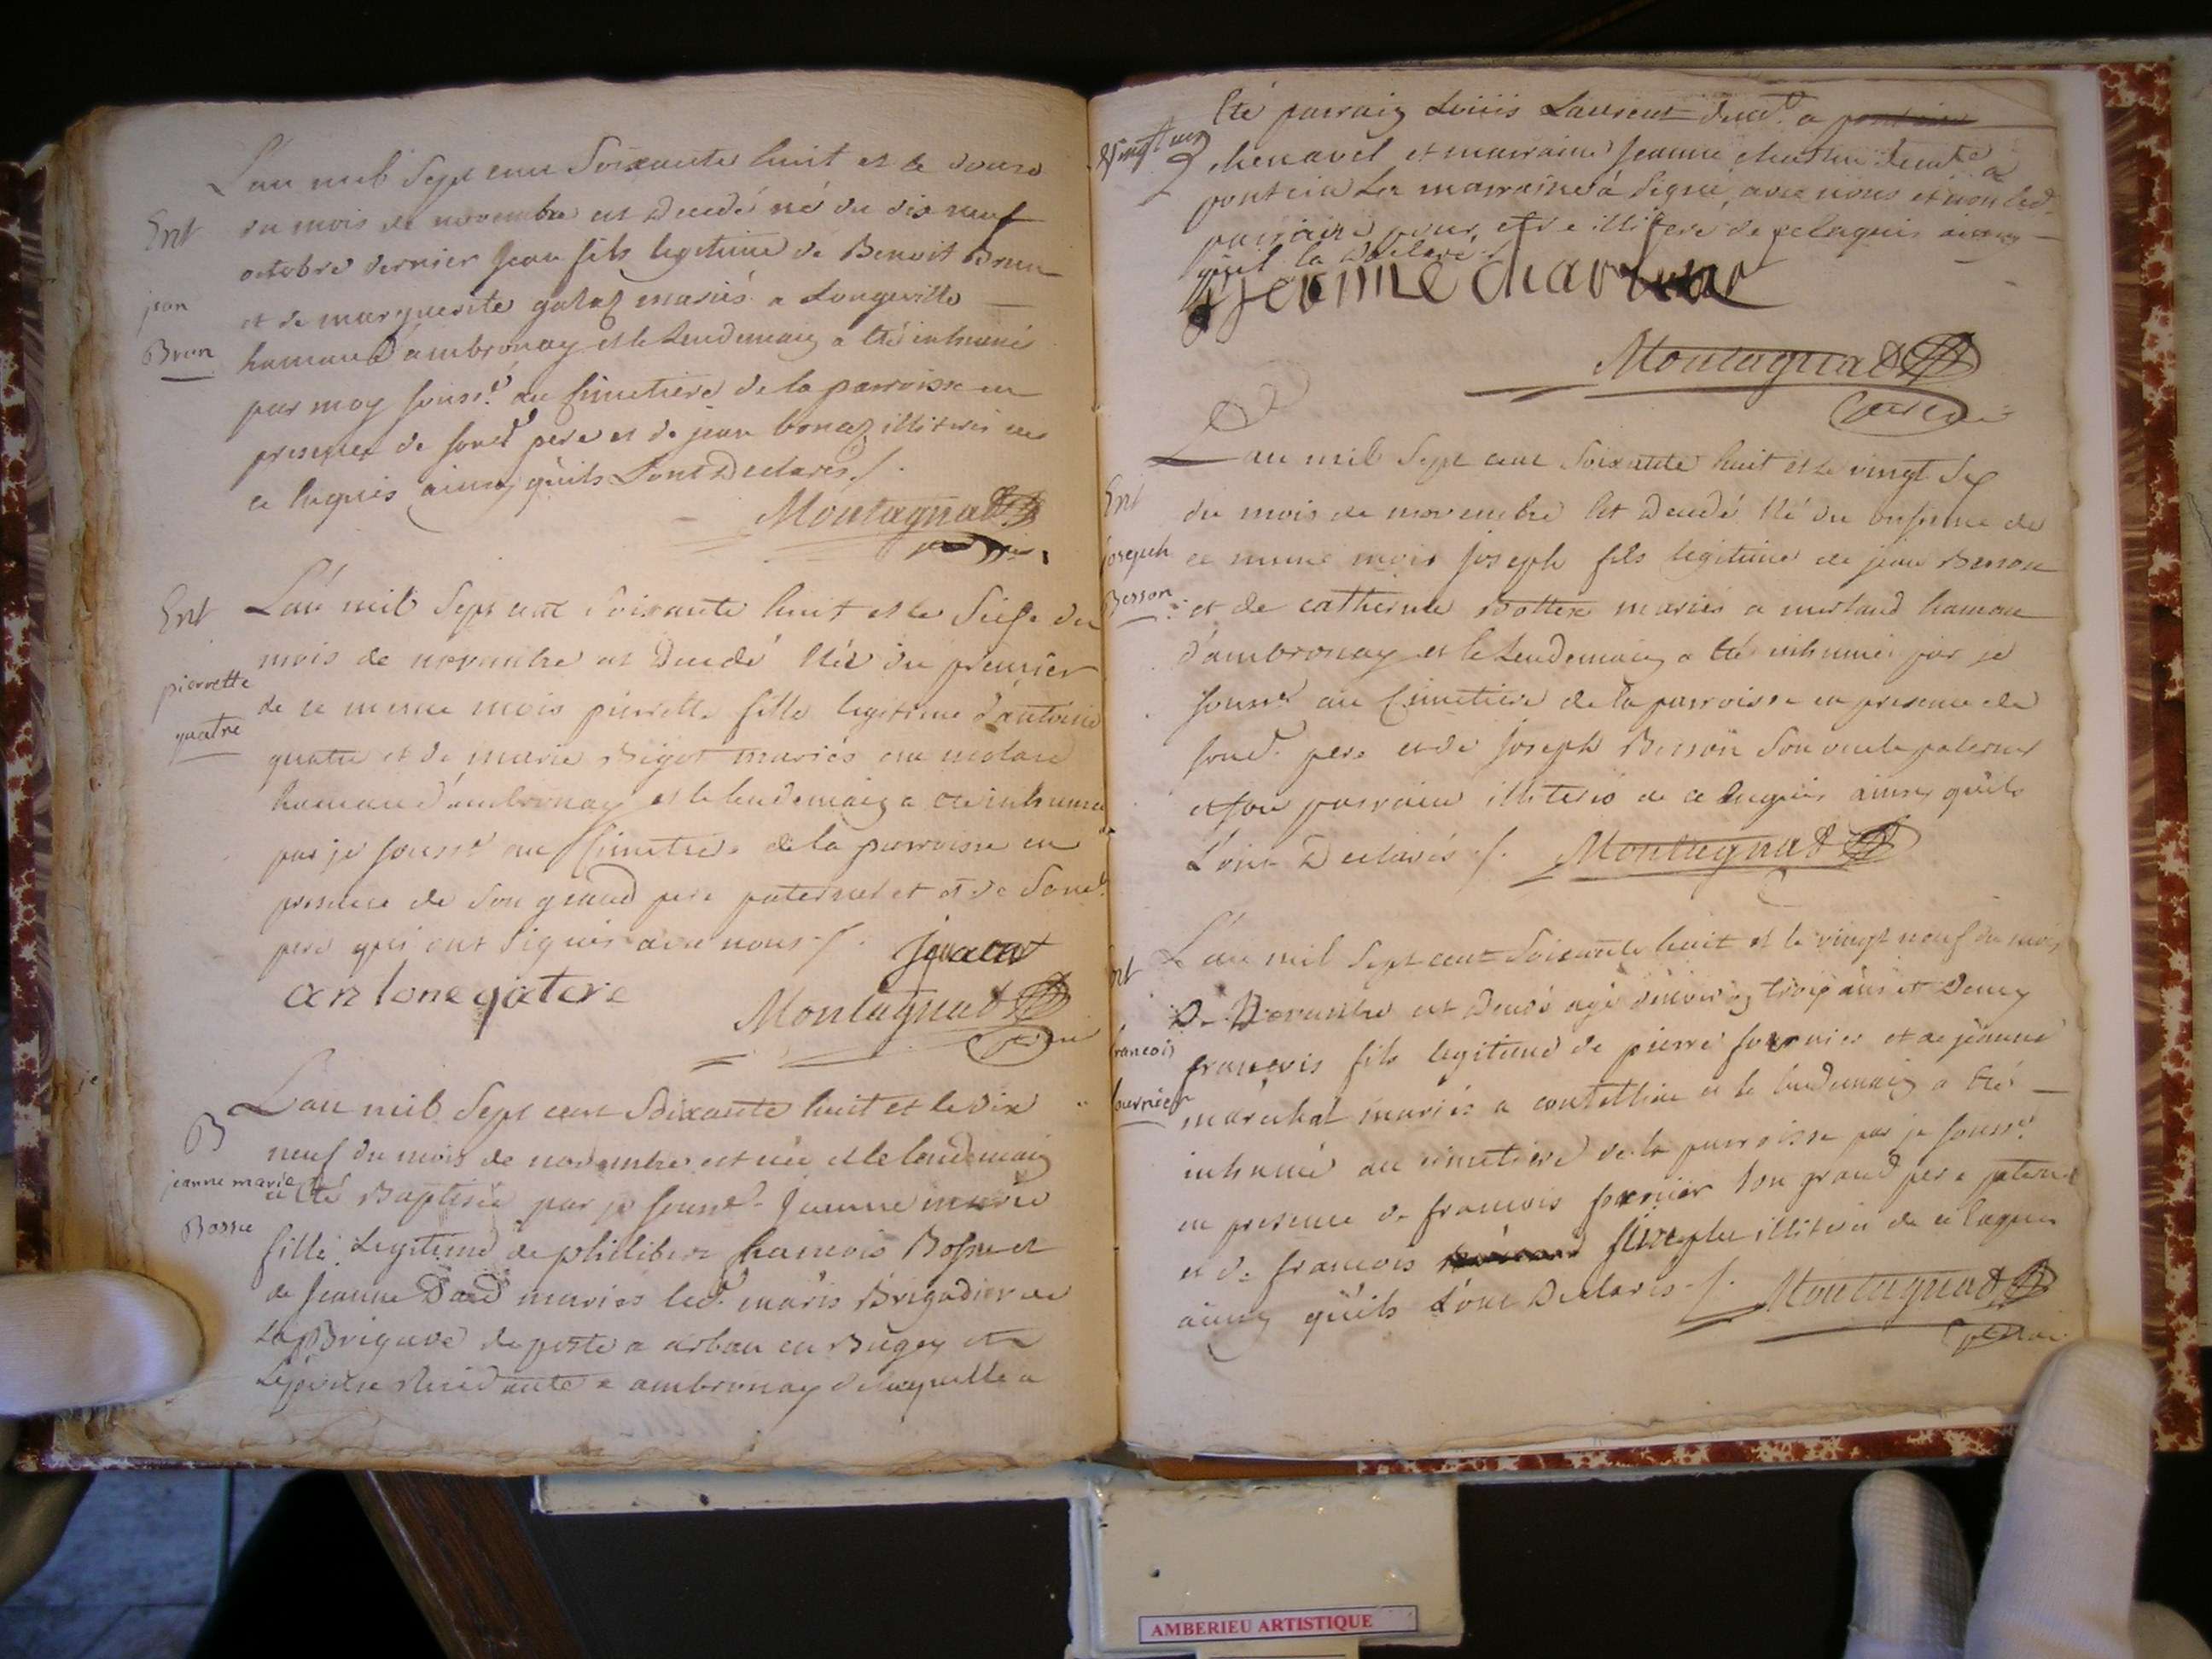 L'an mil Sept cent Soixante huit et le douze
Ent
du mois de novembre est Decedé né du dix neuf
octobre dernier Jean fils legitime de Benoit Brun
jean
et de marguerite galaz mariés a Longeville
Brun
hameau d'ambronay et le Lendemaing a été inhumé
par moy souss.é au Cimetiere de la parroisse en
presence de sond. pere et de jean bonaz illiterés de
ce Enquis ainsy qu'ils L'ont Declarés /.
Montagnad
Ent
L'an mil Sept cent Soixante huit et le Seize du
mois de novembre est Decedé Née du premier
pierrette
de ce meme mois pierrette fille legitime d'antoine
quatre
quatre et de marie Bigot mariés au molard
hameau d'ambronay et le lendemaing a été inhumée
par je souss.é au Cimetiere de la parroisse en
presence de Son grand pere paternel et de Sond.
pere qui ont Signés avec nous /.
antone qatere
Montagnad
B
L'an mil Sept cent Soixante huit et le dix
neuf du mois de novembre est née et le lendemaing
jeanne marie
a été Baptisée par je souss.é Jeanne marie
Bossu
fille Legitime de philibert francois Bossu et
de Jeanne mariés led. maris Brigadier de
La Brigade de poste a arban en Bugey et
L'epouse Residante a ambronay de laquelle a
été parraing Louis Laurent demt. a pontcin
chenavel et marraine Jeanne demte. a
pontcin La marraine à Signé avec nous et non led.
parraing pour etre illitere de ce enquis ainsy
qu'il la Declaré /.
jeanne
Montagnad
curé
L'an mil Sept cent Soixante huit et le vingt Six
Ent
du mois de novembre Est Decedé Né du onsieme de
joseph
ce meme mois Joseph fils legitime de jean Besson
Besson
et de catherine mariés a merland hameau
d'ambronay et le Lendemaing a été inhumé par je
souss.é au Cimetiere de la parroisse en presence de
sond. pere et de Joseph Besson Son oncle paternel
et son parrain illiterés de ce Enquis ainsy qu'ils
L'ont Declarés /. Montagnad
L'an mil Sept cent Soixante huit et le vingt neuf du mois
Ent
De Novembre est Decedé agé d'environ trois ans et Demy
francois
françois fils legitime de pierre fournier et de jeanne
fournier
marechal mariés a coutelieu et le lendemaing a été
inhumé au cimetiere de la parroisse par je souss.é
en presence de francois fournier Son grand pere paternel
et de francois illiterés de ce Enquis
ainsy qu'ils L'ont Declarés /. Montagnad
AMBERIEU ARTISTIQUE